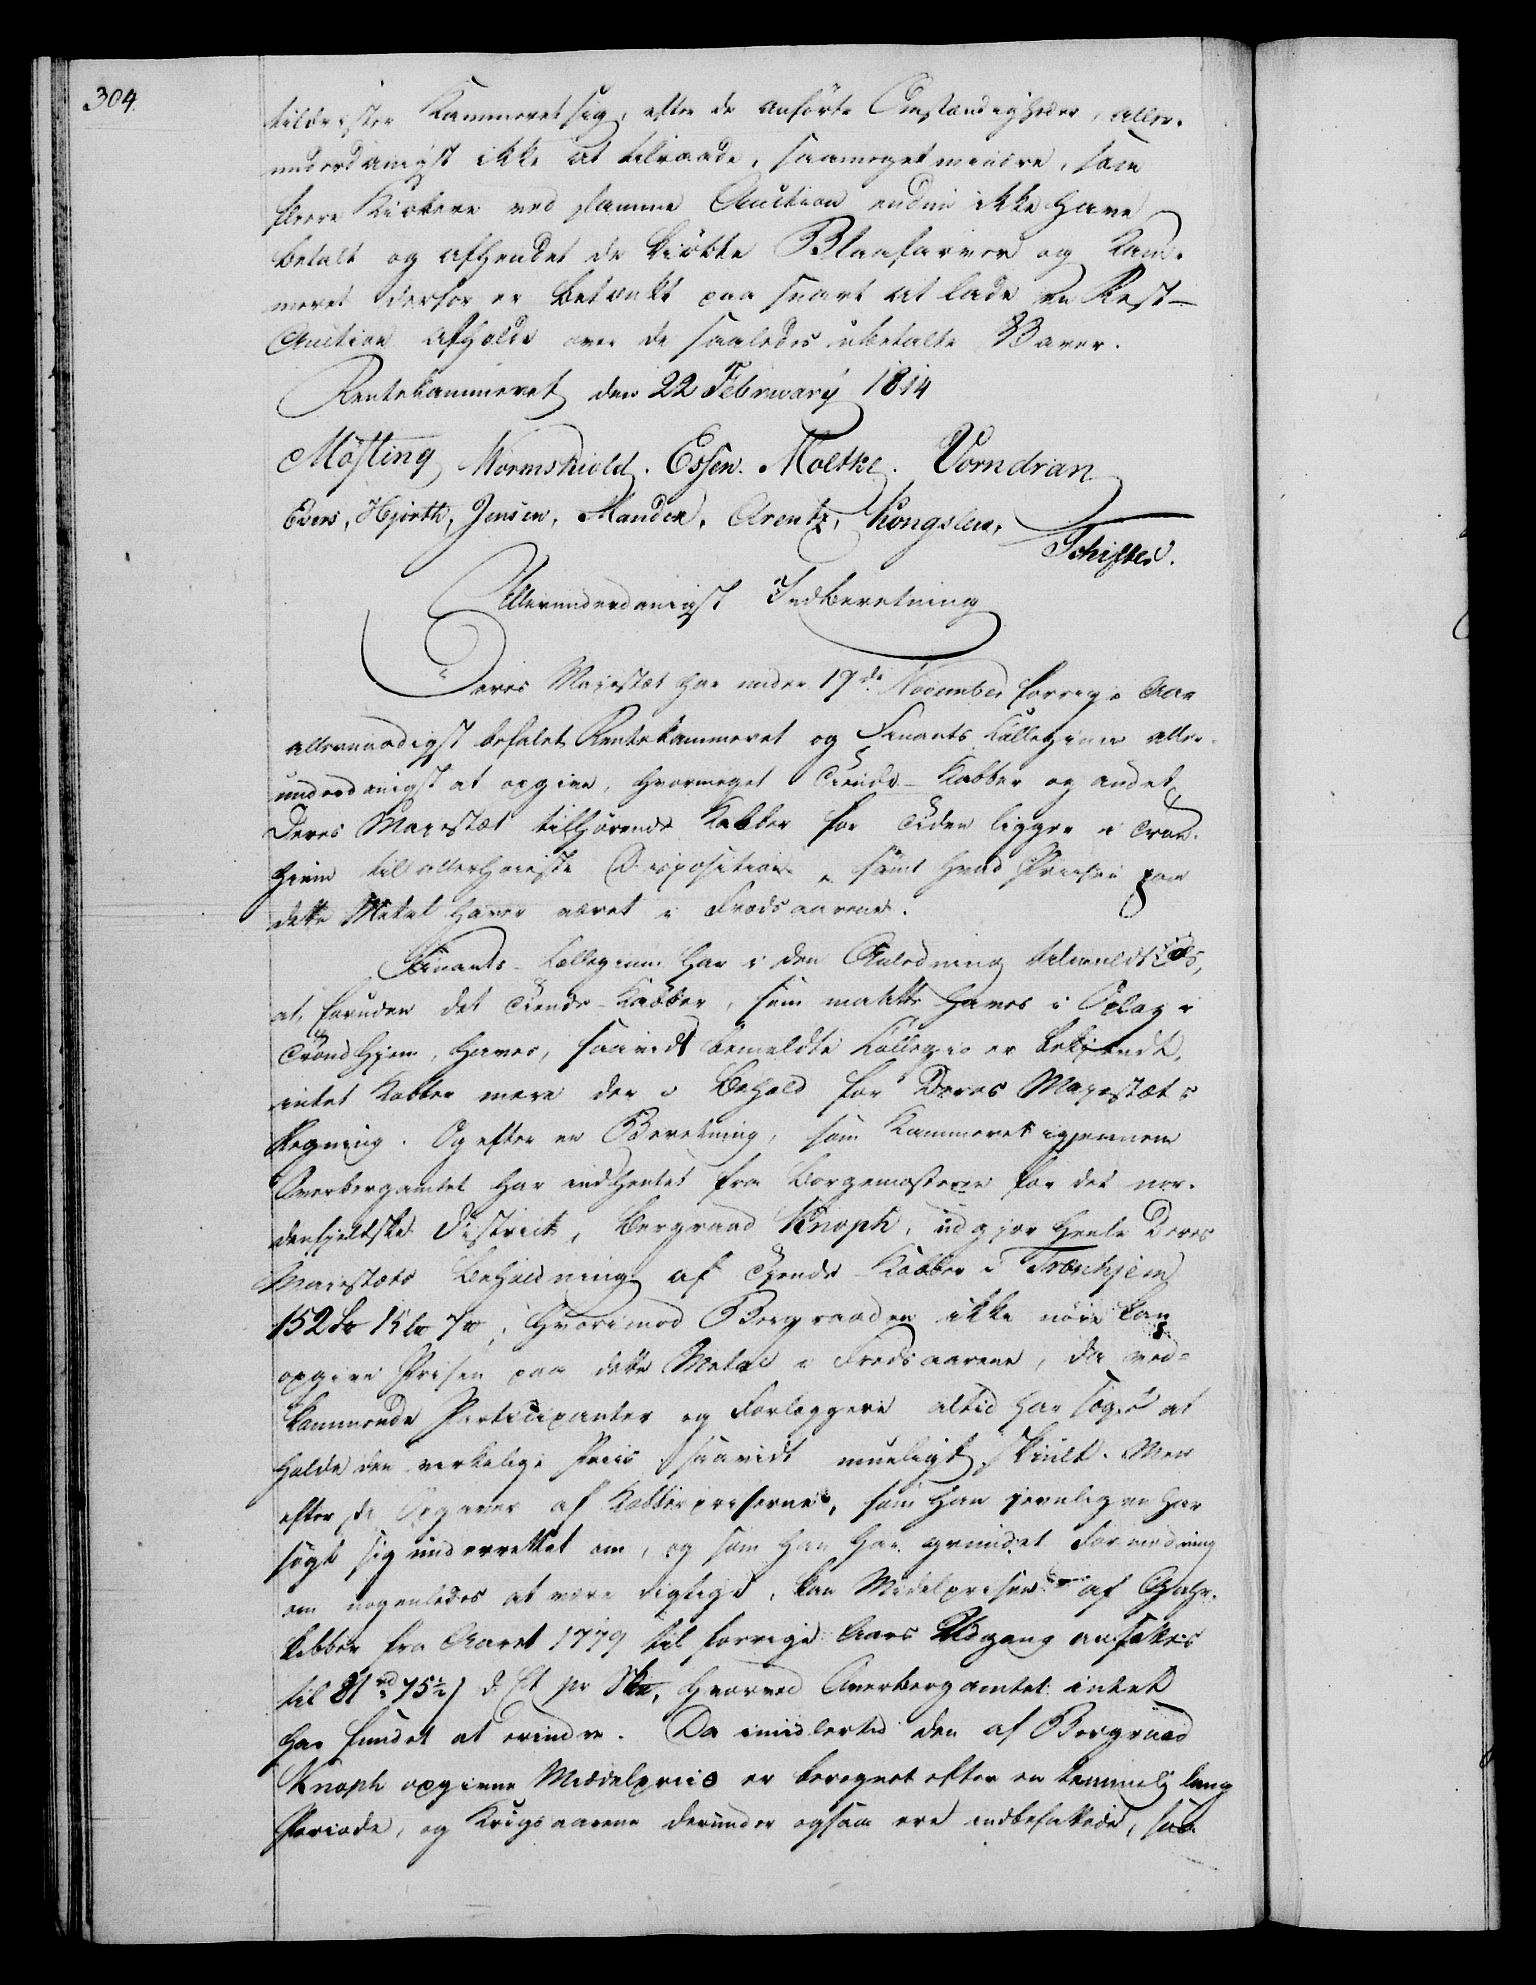 304.
tildrister Kammeret sig, efter de anførte Omstændigheder, aller-
underdanigst ikke at tilraade, saameget mindre, som
fleere Kiøbere ved samme Auction endnu ikke have
betalt og afhendet de kiøbte Blaafarver og Kam-
meret derfor er betænkt paa snart at lade en Rest-
Auction afholde over de saaledes ubetalte Varer.
Rentekammeret den 22 Februarij 1814
Møsting Wormskiold. Essen. Moltke. Vorndran
Evers, Hjorth, Jensen, Mandix, Arentz, Kongslew,
Schifter.
Allerunderdanigst Indberetning
Deres Majestæt har under 17de November forrige Aar
allernaadigst befalet Rentekammeret og Finants Collegium aller-
underdanigst at opgive, hvormeget Tiende-Kobber og andet
Deres Majestæt tilhørende Kobber for Tiden ligger i Tron-
hiem til allerhøieste Disposition, samt hvad Prisen paa
dette Metal haver været i Fredsaarene.
Finants-Collegium har i den Anledning tilmeldt os,
at, foruden det Tiende-Kobber, som maatte haves i Oplag i
Trondhjem, haves, saavidt bemeldte Collegio er bekjendt,
intet Kobber mere der i Behold for Deres Majestæts
Regning. Og efter en Beretning, som Kammeret igjennem
Overbergamtet har indhentet fra Bergmesteren for det nor-
denfjeldske District, Bergraad Knoph, udgjør heele Deres
Majestæts Beholdning af Tiende-Kobber i Tronhjem
152 Sk 15 L 7 , hvorimod Bergraaden ikke nøie kan
opgive Prisen paa dette Metal i Fredsaarene, da ved-
kommende Participanter og Forlæggere altid har søgt at
holde den virkelige Priis saavidt mueligt skiult. Men
efter de Opgaver af Kobberpriserne, som han jevnligen har
søgt sig underrettet om, og som han har grundet Formodning
om nogenledes at være rigtige, kan Middelprisen af Gahr-
kobber fra Aaret 1779 til forrige Aars Udgang ansættes
til 81 rd 75½ s d. Ct pr Sk, hvorved Overbergamtet intet
har fundet at erindre. Da imidlertid den af Bergraad
Knoph opgivne Middelpriis er beregnet efter en temmelig lang
Periode, og Krigsaarene derunder ogsaa ere indbefattede, saa